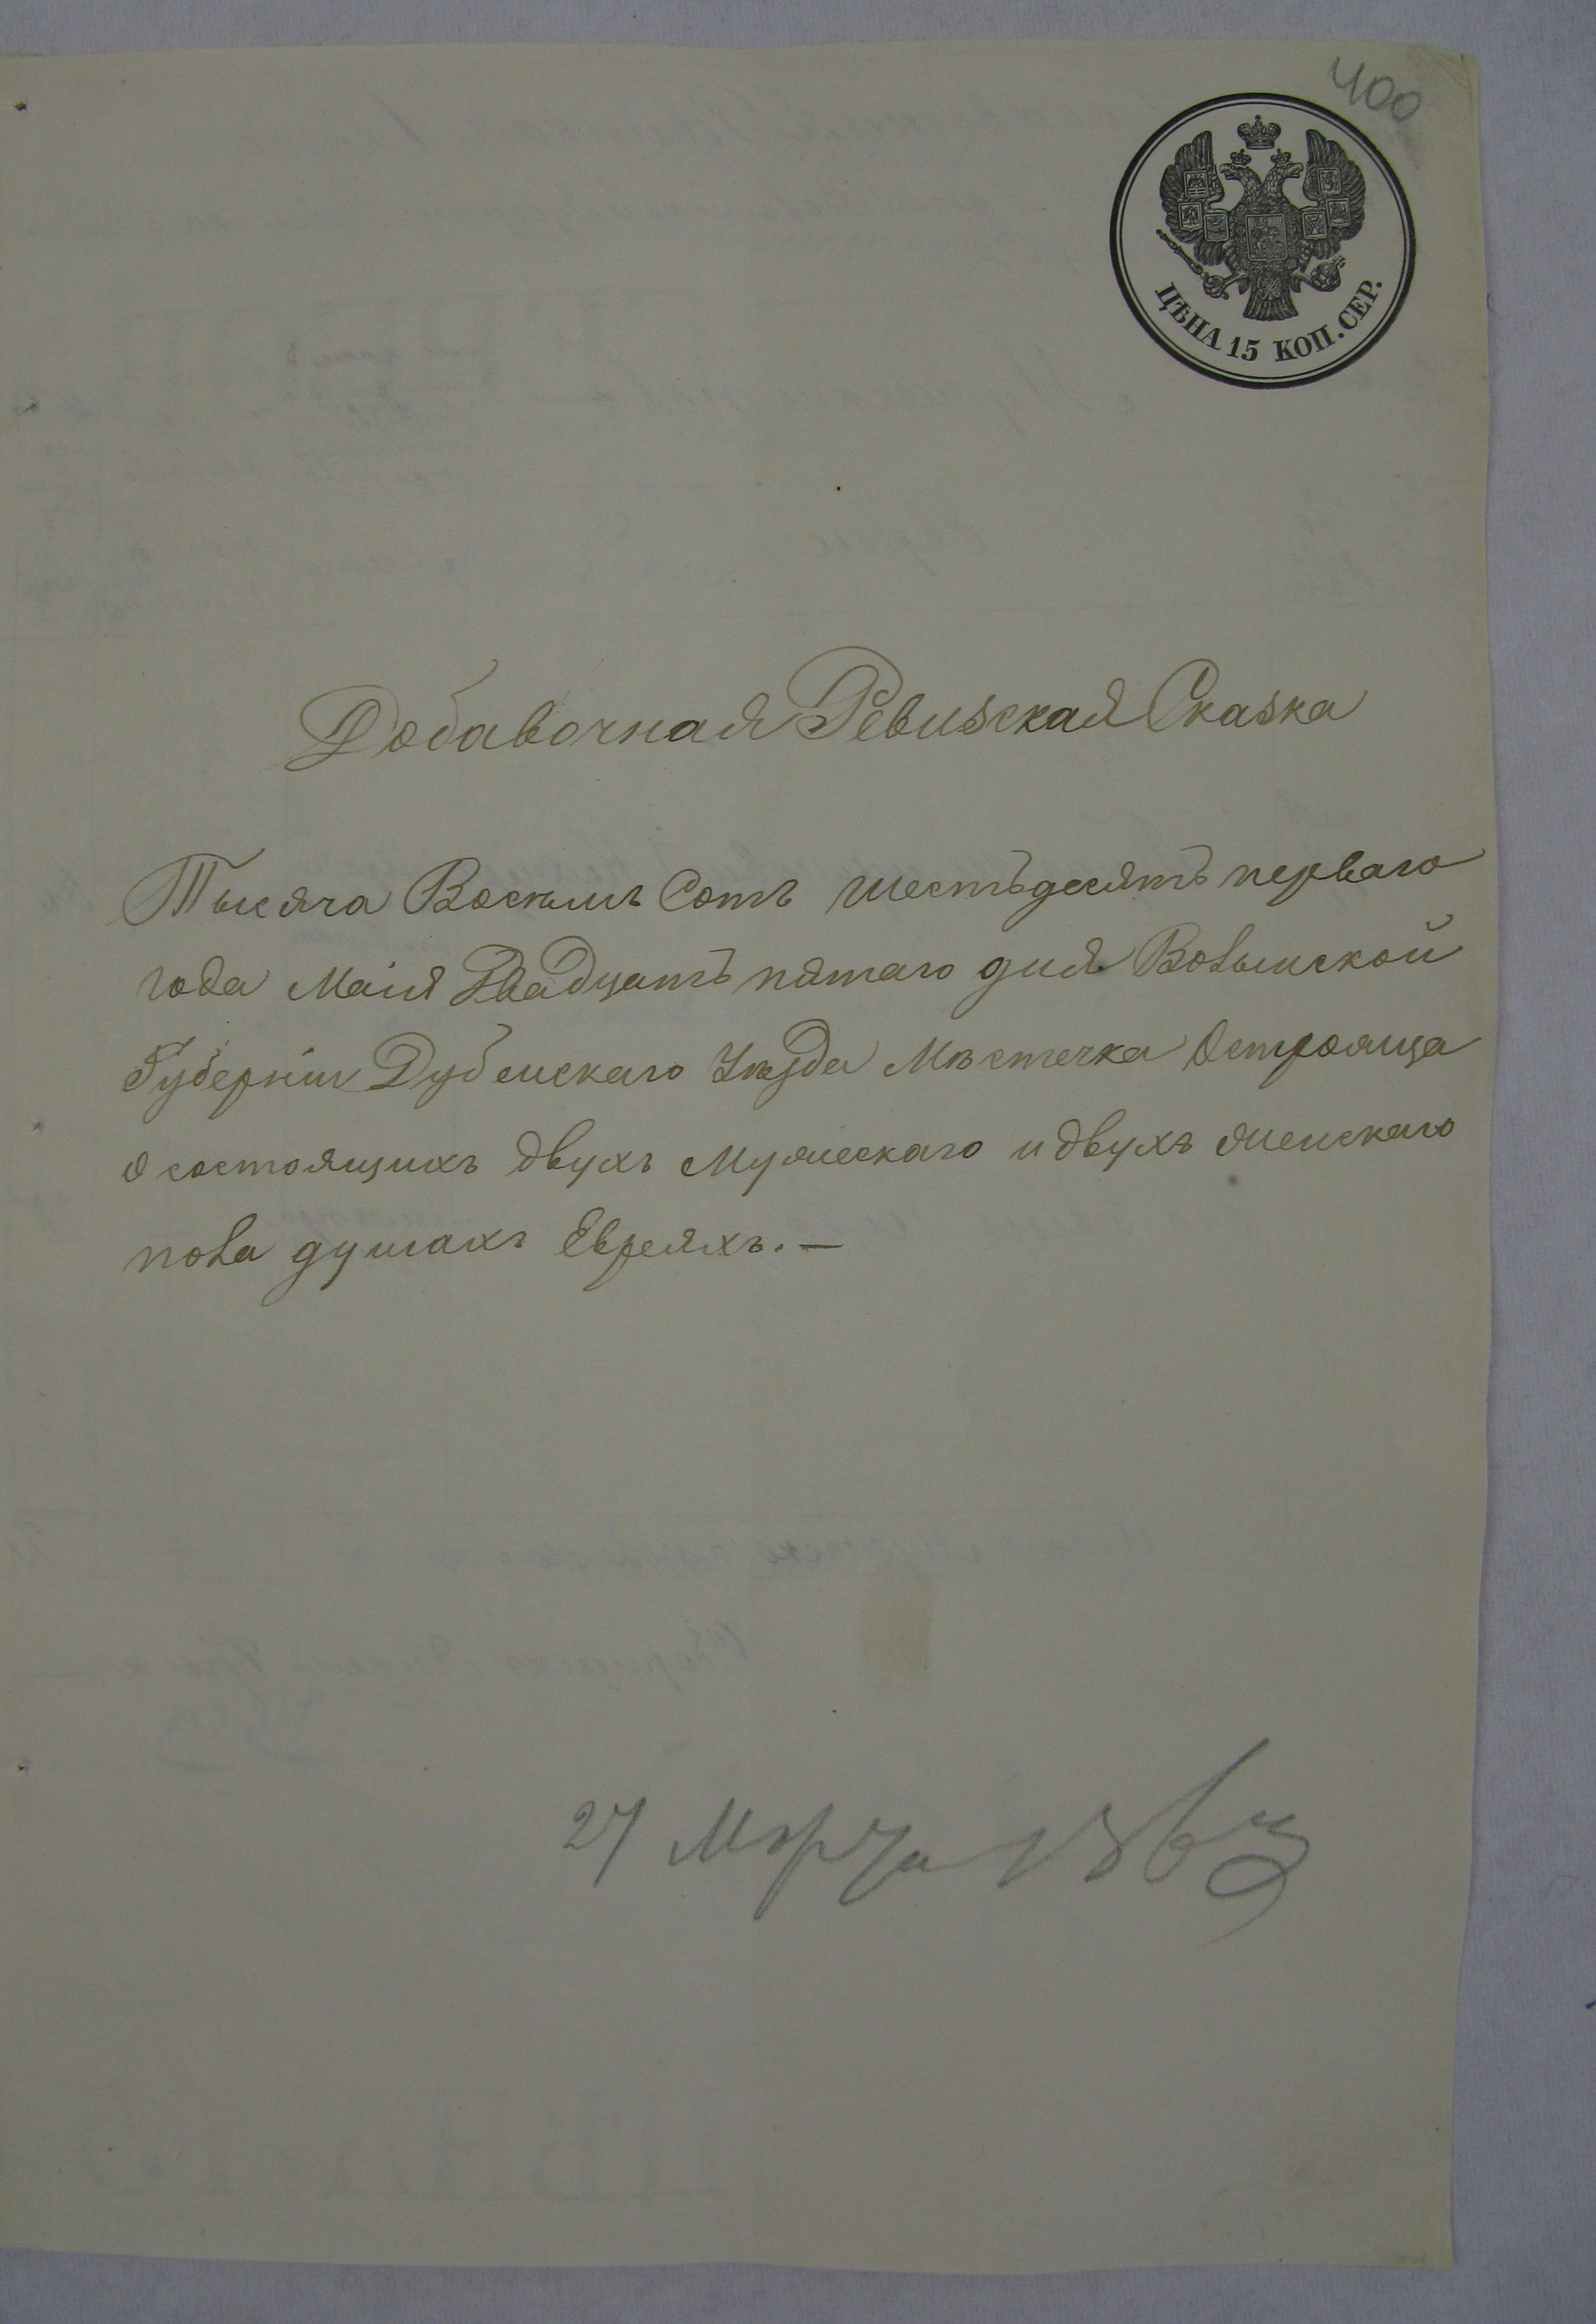 400
ЦѢНА 15 КОП. СЕР.
Добавочная Ревизская Сказка
Тысяча Восемь Сотъ шестьдесятъ перваго
года Маія Двадцать пятаго дня Волынской
Губерніи Дубенскаго Уѣзда Мѣстечка Острожца
о состоящихъ двухъ Мужескаго и двухъ женскаго
пола душахъ Евреяхъ. —
27 Марта